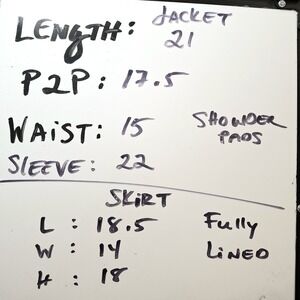 JACKET
LENGTH: 21
P2P: 17.5
WAIST: 15
SHOWDER
PADS
SLEEVE: 22
SKIRT
L : 18.5 Fully
W : 14 LINED
H : 18